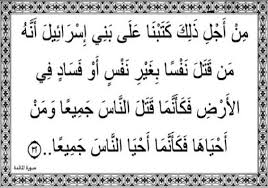 مِنْ أَجْلِ ذَلِكَ كَتَبْنَا عَلَى بَنِي إِسْرَائِيلَ أَنَّهُ
مَن قَتَلَ نَفْسًا بِغَيْرِ نَفْسٍ أَوْ فَسَادٍ فِي
الأَرْضِ فَكَأَنَّمَا قَتَلَ النَّاسَ جَمِيعًا وَمَنْ
أَحْيَاهَا فَكَأَنَّمَا أَحْيَا النَّاسَ جَمِيعًا.. ٣٢
سورة المائدة